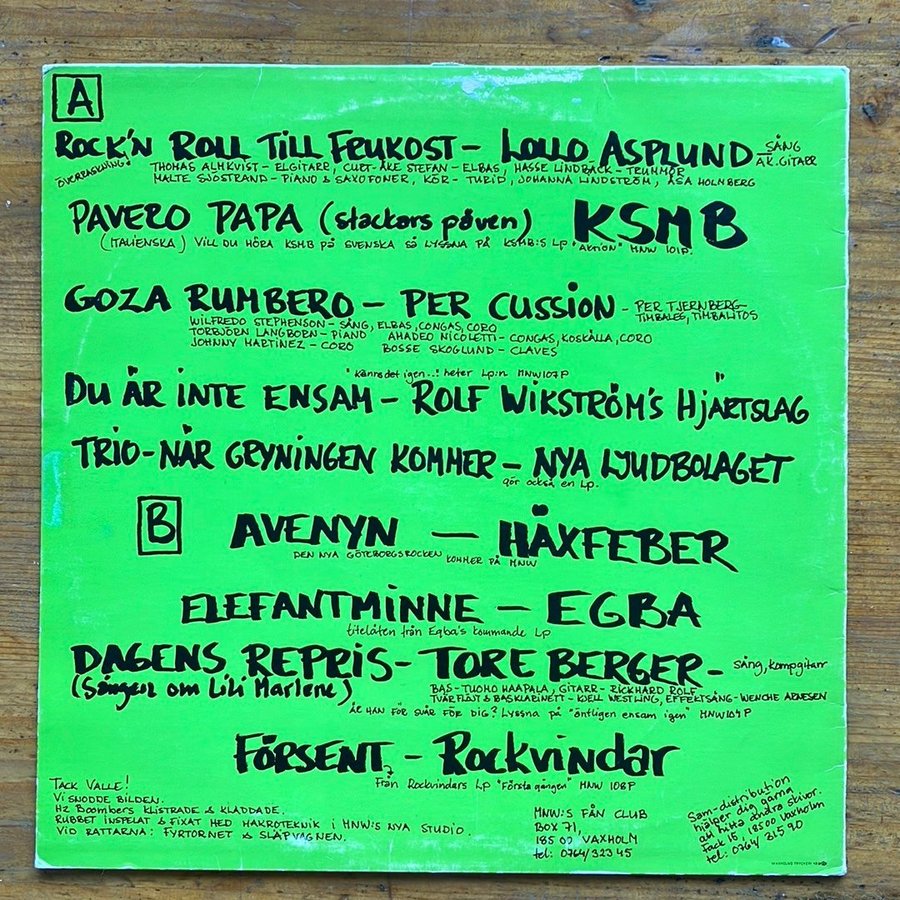 A
ROCK'N ROLL TILL FRUKOST - LOLLO ASPLUND - SÅNG AK.GITARR
ÖVERRASKNING! THOMAS ALMKVIST - ELGITARR, CURT-ÅKE STEFAN - ELBAS, HASSE LINDBÄCK - TRUMMOR
MALTE SJÖSTRAND - PIANO & SAXOFONER, KÖR - TURID, JOHANNA LINDSTRÖM, ÅSA HOLMBERG
PAVERO PAPA (stackars påven) KSMB
(ITALIENSKA) VILL DU HÖRA KSMB PÅ SVENSKA SÅ LYSSNA PÅ KSMB:S LP "AKTION" MNW 101P.
GOZA RUMBERO - PER CUSSION - PER TJERNBERG - TIMBALES, TIMBALITOS
WILFREDO STEPHENSON - SÅNG, ELBAS, CONGAS, CORO
TORBJÖRN LANGBORN - PIANO AHMADEO NICOLETTI - CONGAS, KOSKÄLLA, CORO
JOHNNY MARTINEZ - CORO BOSSE SKOGLUND - CLAVES
"Känns det igen..! heter Lp:n MNW107P
DU ÄR INTE ENSAM - ROLF WIKSTRÖM'S HJÄRTSLAG
TRIO - NÄR GRYNINGEN KOMMER - NYA LJUDBOLAGET
gör också en Lp.
B
AVENYN - HÄXFEBER
DEN NYA GÖTEBORGSROCKEN KOMMER PÅ MNW
ELEFANTMINNE - EGBA
titellåten från Egba's kommande Lp
DAGENS REPRIS - TORE BERGER - sång, kompgitarr
(Sången om Lili Marlene) BAS - TUOMO HAAPALA, GITARR - RICKHARD ROLF
TVÄRFLÖJT & BASKLARINETT - KJELL WESTLING, EFFEKTSÅNG - WENCHE ARNESEN
ÄR HAN FÖR SVÅR FÖR DIG? Lyssna på "äntligen ensam igen" MNW104P
FÖRSENT - Rockvindar
Från Rockvindars Lp "Första gången" MNW 108P
TACK VALLE!
VI SNODDE BILDEN.
HZ BOOMBERS KLISTRADE & KLADDADE.
RUBBET INSPELAT & FIXAT MED MAKROTEKNIK I MNW:S NYA STUDIO.
VID RATTARNA: FYRTORNET & SLÄPVAGNEN.
MNW:S FÅN CLUB
BOX 71,
185 00 VAXHOLM
tel: 0764/323 45
Sam-distribution
hjälper dig gärna
att hitta andra skivor.
Fack 15, 18500 Vaxholm
tel: 0764/315 90